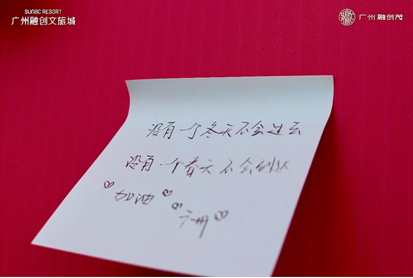 SUNAC RESORT
广州融创文旅城
广州融创茂
没有一个冬天不会过去
没有一个春天不会到达
加油
广州